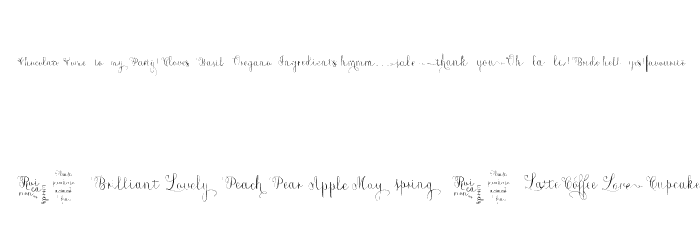 Chocolate Come to my Party! Cloves Basil Oregano Ingredients hmmm... sale thank you Oh la la! Bride hell yes! favourite
Brilliant Lovely Peach Pear Apple May spring Latte Coffee Love Cupcake